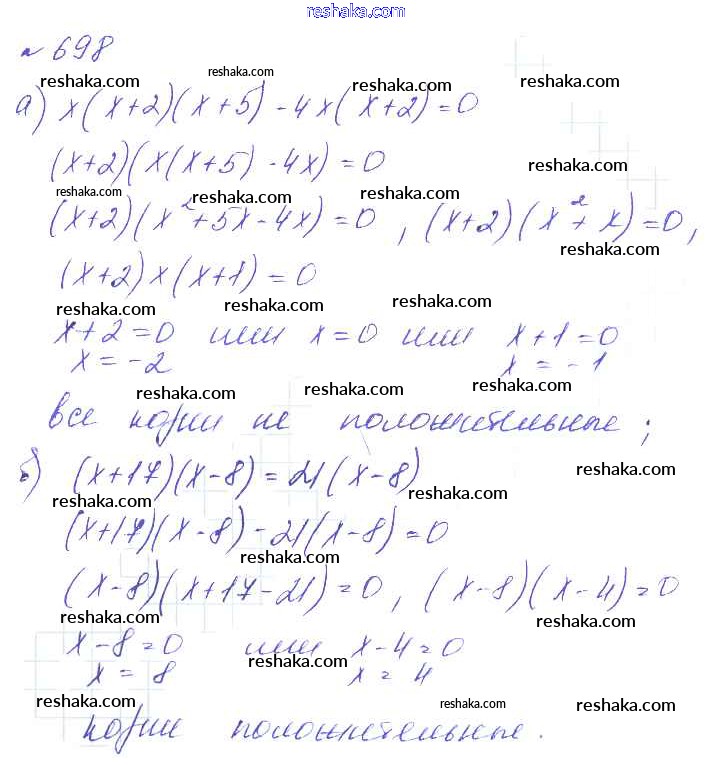 reshaka.com
№ 698
reshaka.com reshaka.com reshaka.com reshaka.com
а) x(x+2)(x+5) - 4x(x+2) = 0
(x+2)(x(x+5) - 4x) = 0 reshaka.com
reshaka.com reshaka.com reshaka.com
(x+2)(x²+5x-4x) = 0, (x+2)(x²+x) = 0,
reshaka.com
(x+2)x(x+1) = 0
reshaka.com reshaka.com reshaka.com
x+2=0 или x=0 или x+1=0
x=-2 x=-1
reshaka.com reshaka.com
все корни не положительные;
б) (x+17)(x-8) = 21(x-8) reshaka.com
reshaka.com reshaka.com
(x+17)(x-8) - 21(x-8) = 0
reshaka.com
(x-8)(x+17-21) = 0, (x-8)(x-4) = 0
reshaka.com reshaka.com
x-8=0 или x-4=0
reshaka.com
x = 8 x = 4
reshaka.com reshaka.com reshaka.com
корни положительные.
reshaka.com reshaka.com